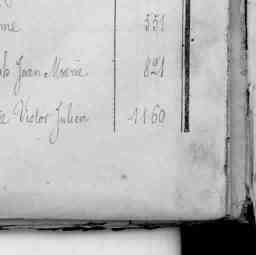 me 551
Jean Marie 821
Victor Julien 1160